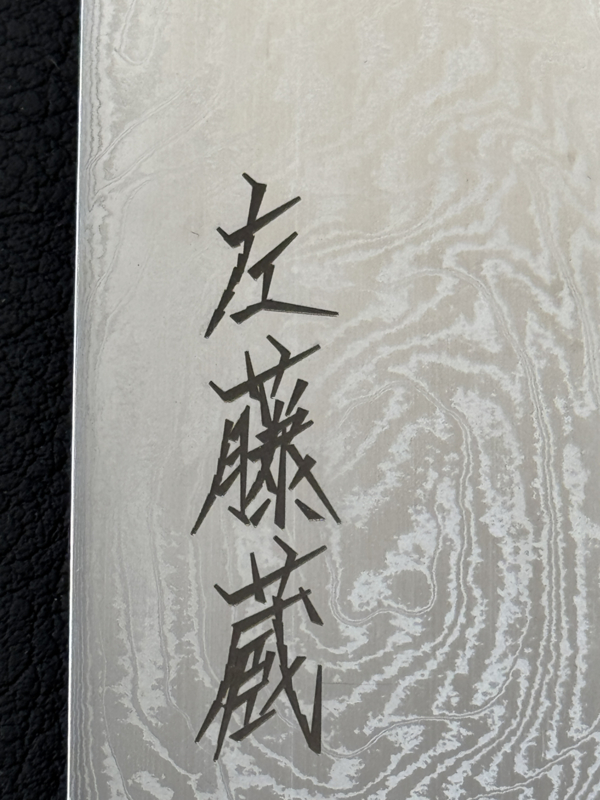 左藤蔵